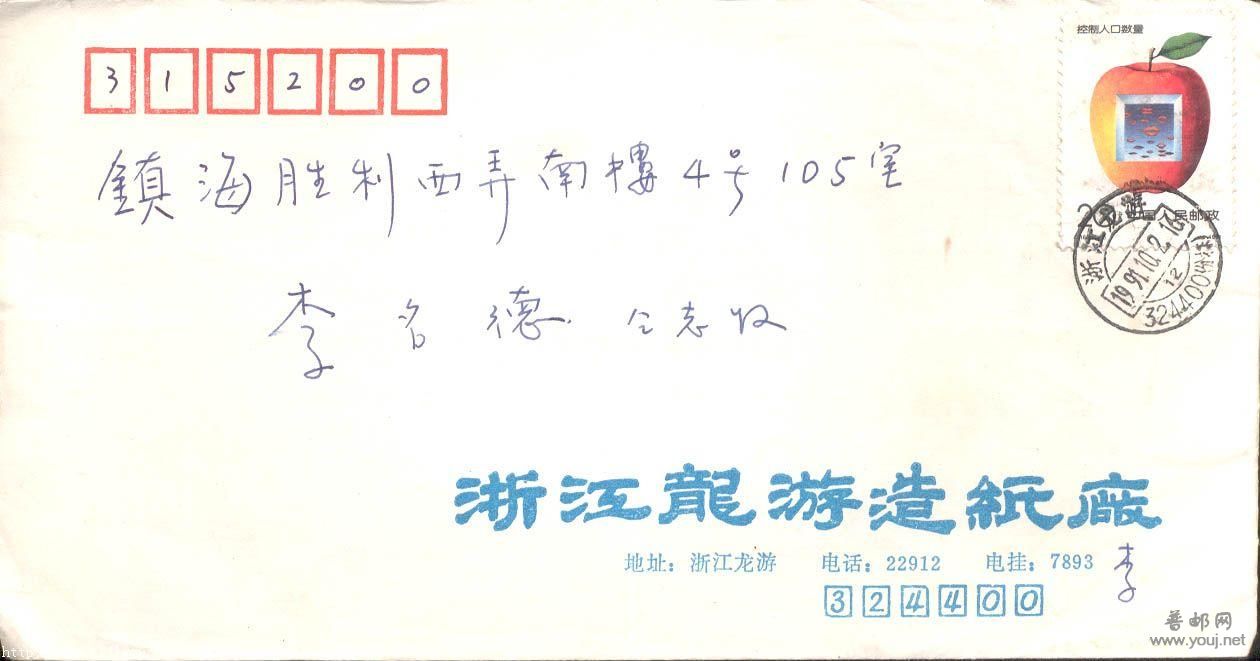 315200
控制人口数量
鎮海胜利西弄南樓4号105室
中国人民邮政
浙江龙游
1991.10.2.16
12
324400
李名德 仝志收
浙江龍游造紙廠
地址：浙江龙游 电话：22912 电挂：7893 李
324400
普邮网
www.youj.net